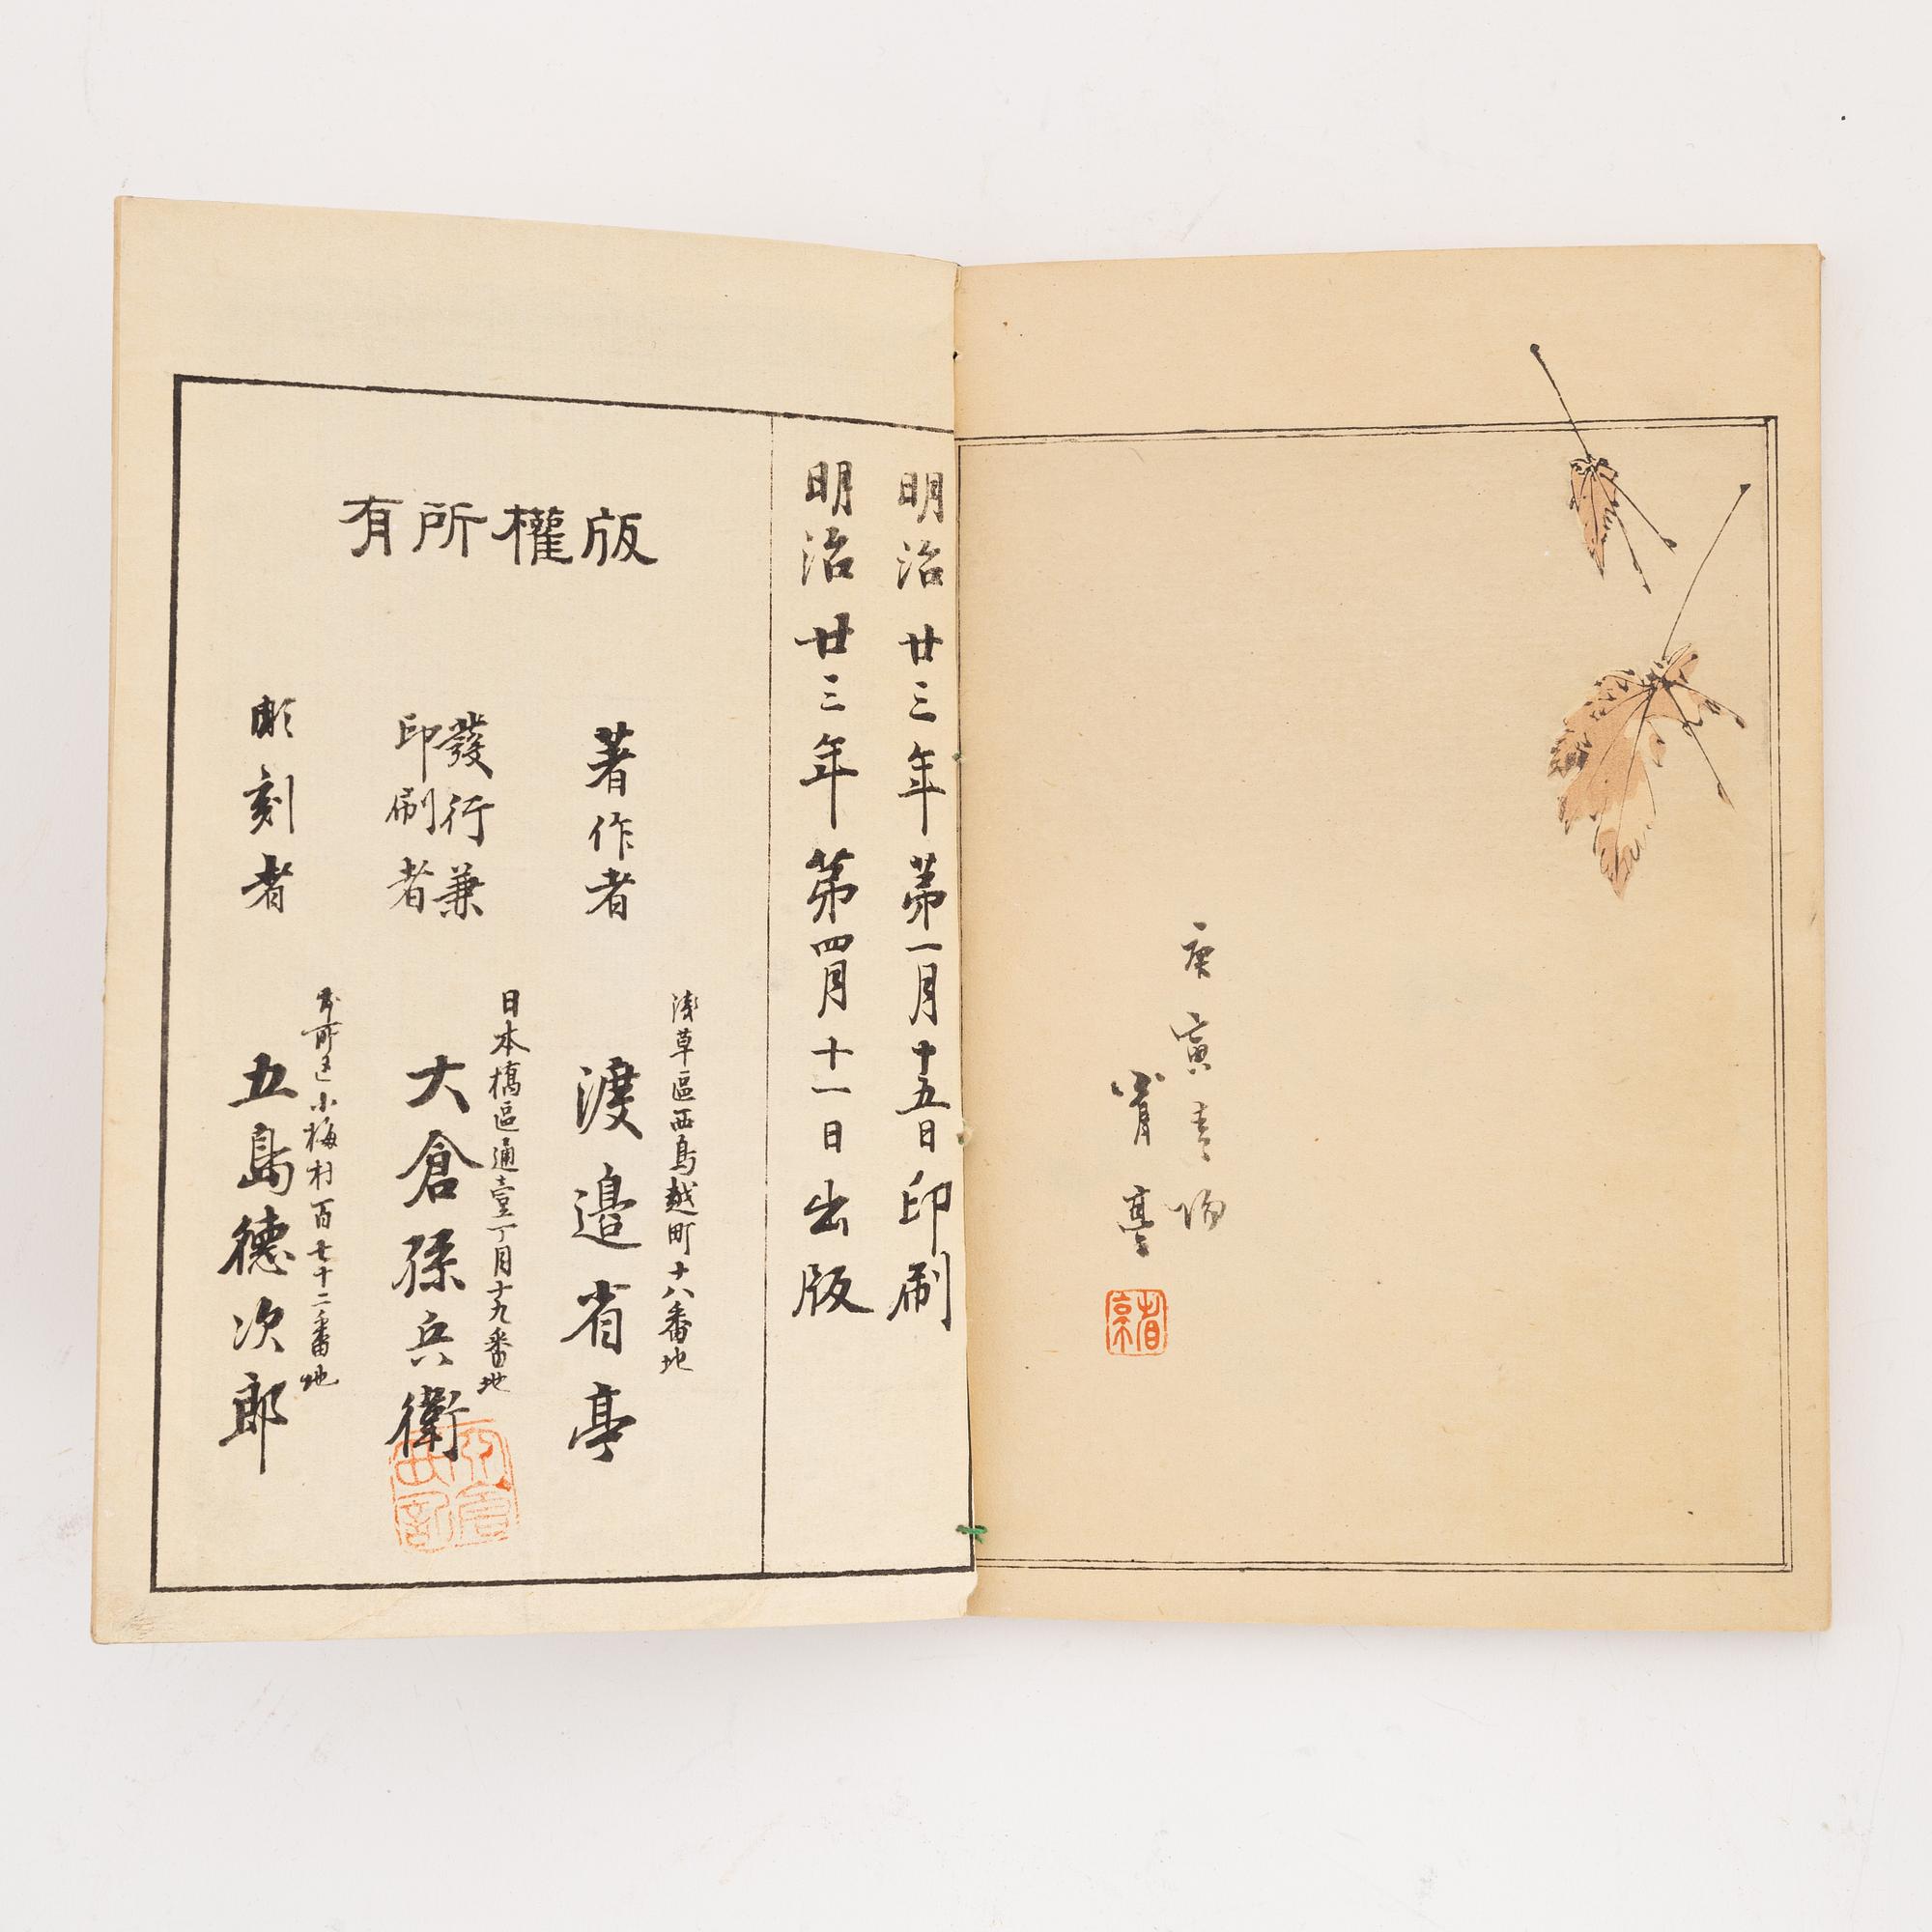 庚寅青陽
省亭
省亭
明治廿三年第一月十五日印刷
明治廿三年第四月十一日出版
版權所有
淺草區西鳥越町十八番地
著作者 渡邉省亭
日本橋區通壹丁目十九番地
發行兼印刷者 大倉孫兵衛
本所區小梅村百七十二番地
彫刻者 五島德次郎